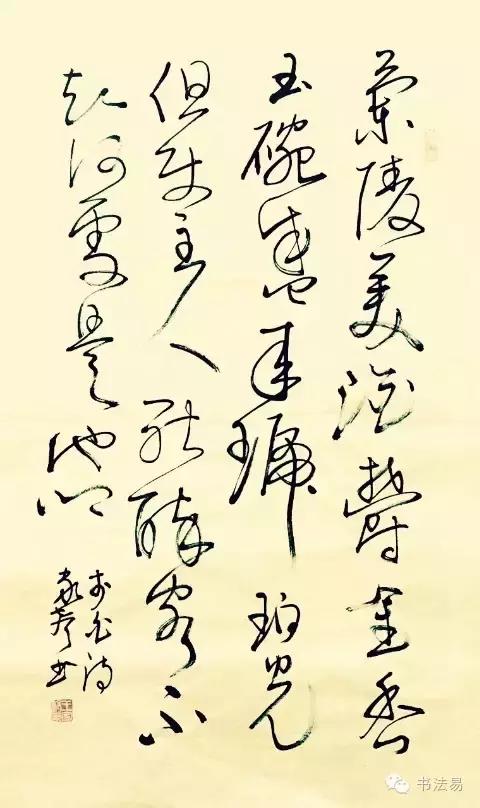 蘭陵美酒鬱金香
玉碗盛来琥珀光
但使主人能醉客不
知何處是他鄉
李白诗
书法易